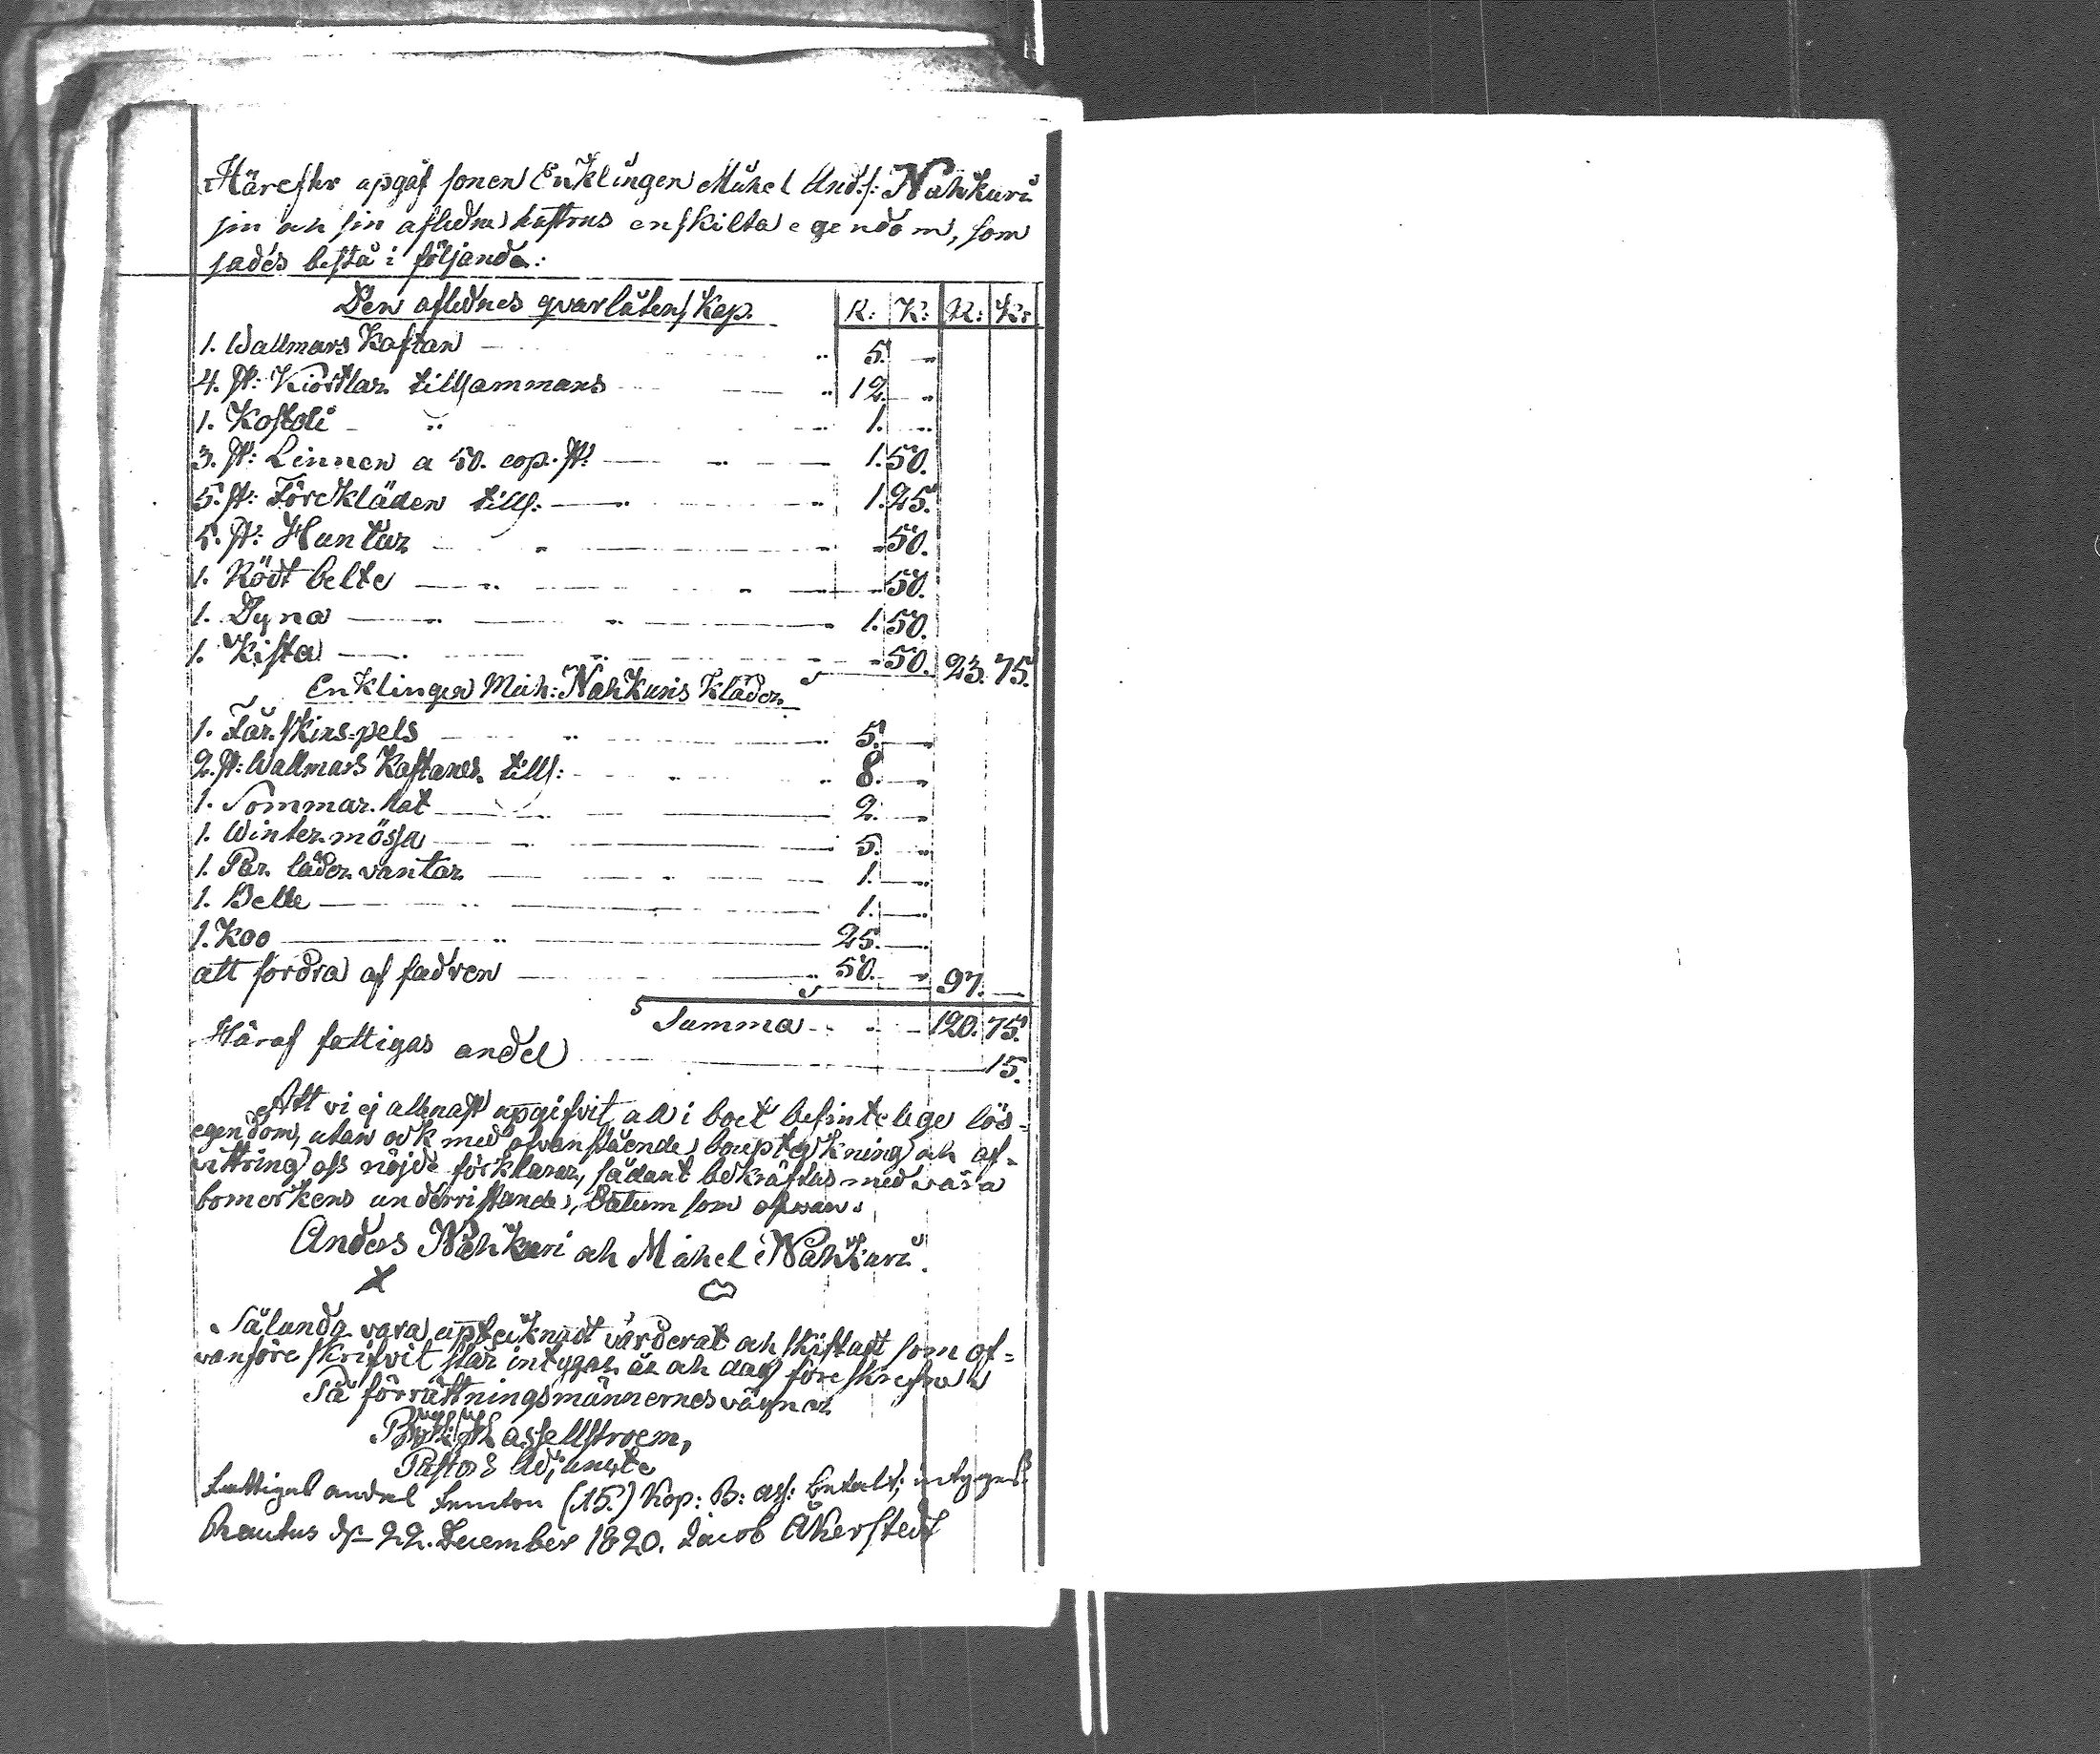 Härefter upgaf sonen Enklingen Mickel And.s: Nahkuri
sin och sin aflidna hustrus enskilta egendom, som
sades bestå i följande:
Den aflednes qvarlåtenskap. R: K: R: K:
1. Wallmars Kaftan - - - „ 5. „
4. st: Kiortlar tillsammans - - „ 12. „
1. Kostoli - „ - - 1. „
3. st: Linnen a 50. cop. st: - „ - 1. 50.
5. st: Förekläden tills: - - „ 1. 25.
5. st: Huntur - „ - - „ 50.
1. Rödt belte - „ - „ - „ 50.
1. Dyna - „ - „ - 1. 50.
1. Kista - - „ - „ 50. 23. 75.
Enklingen Mich: Nahkuris kläder.
1. Fårskins-pels - „ - „ 5. „
2. st: Wallmars Kaftaner tills: - - „ 8. „
1. Sommar hat - - 2. „
1. Winter mössa - „ - 5. „
1. Par läder vantar - „ - 1. „
1. Belte - - 1. „
1. Koo - „ - 25. „
att fordra af fadren - „ 50. „ 97. -
Summa - - - 120. 75.
Häraf fattigas andel - 15.
Att vi ej allenast upgifvit all i boet befintelige lös-
egendom, utan ock med ofvanstående boupteckning och af-
vittring oss nöjde förklarar, sådant bekräftas med våra
bomerkens underristande, Datum som ofvan.
Anders Nahkuri och Mickel Nahkuri.
X
Sålunda vara upteiknadt värderat och skiftadt som of-
vanföre skrifvit står intygar år och dag föreskrefne
På förrättningsmännernes vägnar
assellstroem,
Pastors Adjuncte
Fattigas andel femton (15.) Kop: B: ass: betalt; intygas
Rautus d. 22. December 1820. Jacob Åkerstedt